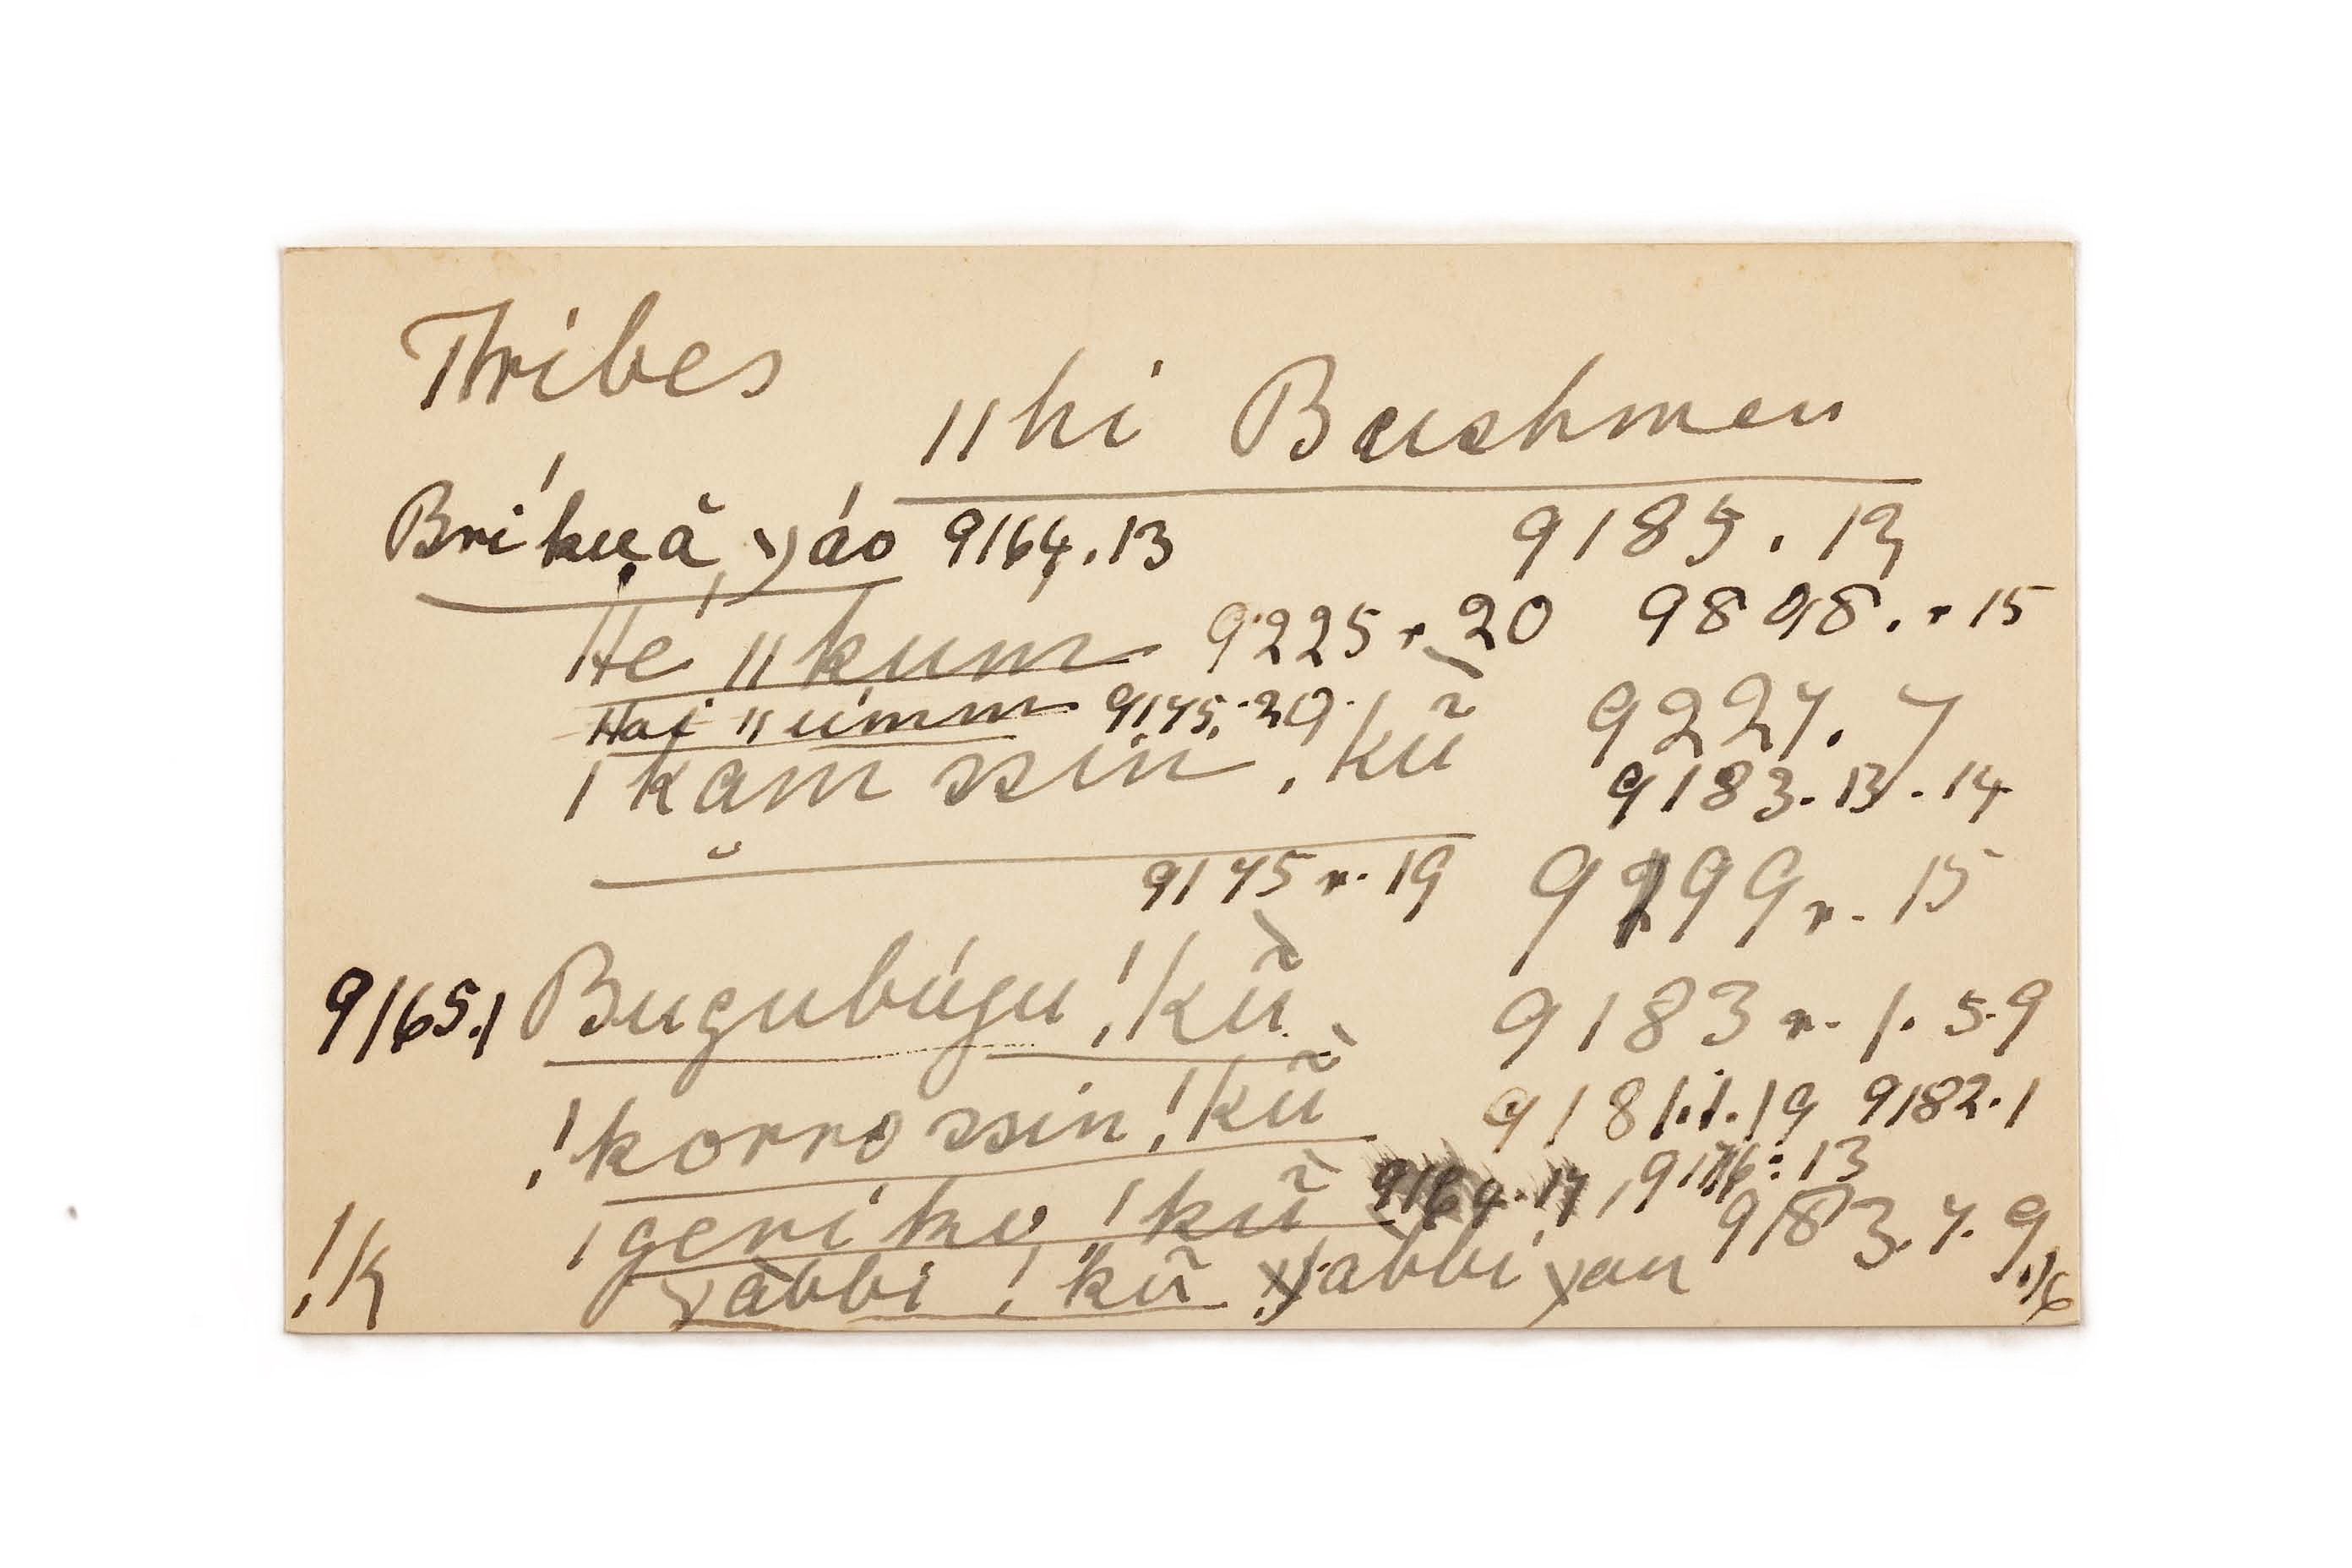 Tribes
ǁhi Bushmen
Bríkuā yáo 9164.13 9185.19
Hé ǁkum 9225r.20 9898.r15
Hai ǁúmm 9175.20. 9227.7
ǀkam ssin !kũ̀ 9183.13.14
9175r.19 9299r.15
9165.1 Bugubúgu !kũ̀ 9183r.1.5.9
!korro ssin !kũ̀ 9181.1.19 9182.1
ǀgeríko !kũ̀ 9164.17, 9176:13
!k yabbi !kũ yabbi yan 9183.7.9.16